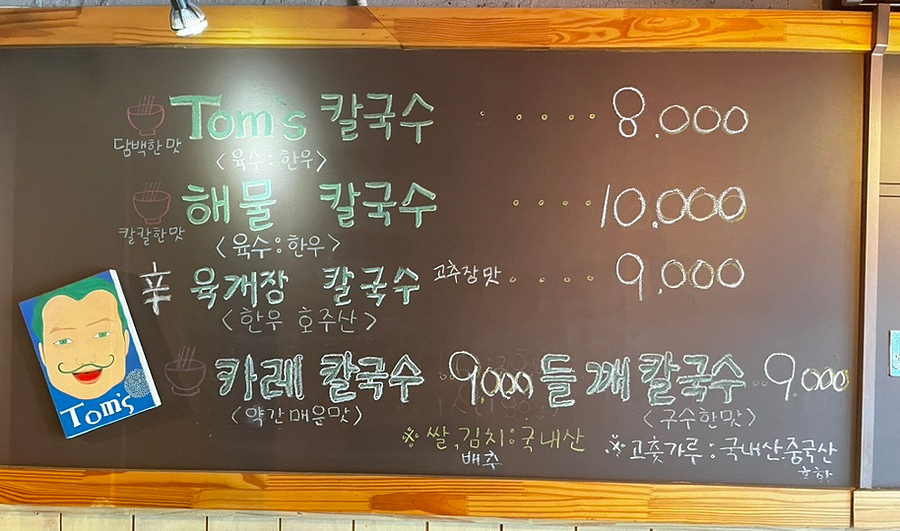 Tom's 칼국수 .... 8.000
담백한맛
<육수:한우>
해물 칼국수 .... 10.000
칼칼한맛
<육수:한우>
辛 육개장 칼국수 고추장맛 .... 9,000
<한우 호주산>
카레 칼국수 9,000 들깨칼국수 .. 9.000
(약간매운맛) (구수한맛)
※쌀,김치:국내산
배추
※고춧가루:국내산.중국산
Tom's